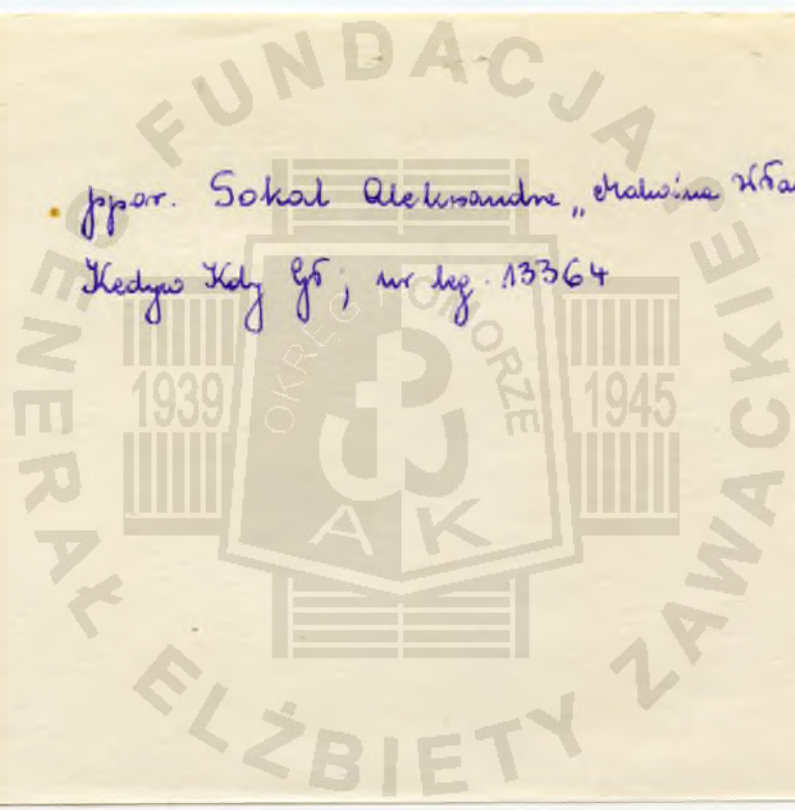 ppor. Sokal Aleksandra „Malwina Wła
Kedyw Kdy Gł; nr leg. 13364
FUNDACJA GENERAŁ ELŻBIETY ZAWACKIEJ
OKRĘG POMORZE
1939 1945
AK